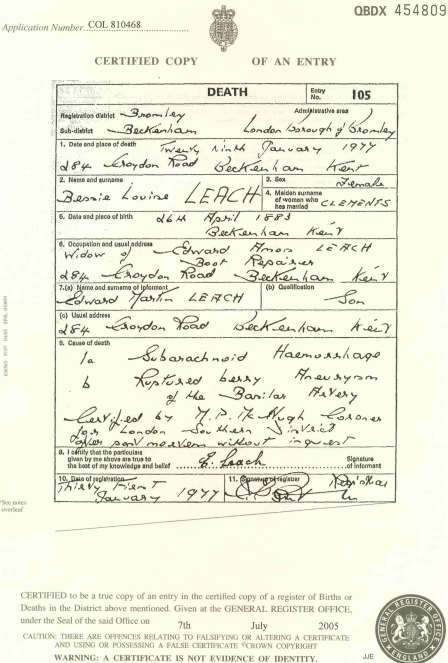 QBDX 454809
Application Number COL 810468
CERTIFIED COPY OF AN ENTRY
DEATH Entry No. 105
Registration district Bromley Administrative area
Sub-district Beckenham London Borough of Bromley
1. Date and place of death Twenty ninth January 1977
284 Croydon Road Beckenham Kent
2. Name and surname 3. Sex Female
Bessie Louise LEACH 4. Maiden surname of woman who has married CLEMENTS
5. Date and place of birth 26th April 1883
Beckenham Kent
6. Occupation and usual address
Widow of Edward Amos LEACH
Boot Repairer
284 Croydon Road Beckenham Kent
7.(a) Name and surname of informant (b) Qualification
Edward Martin LEACH Son
(c) Usual address
284 Croydon Road Beckenham Kent
8. Cause of death
1a Subarachnoid Haemorrhage
b Ruptured berry Aneurysm
of the Basilar Artery
Certified by Coroner
for London Southern District
after post mortem without inquest
9. I certify that the particulars given by me above are true to the best of my knowledge and belief E. Leach Signature of informant
10. Date of registration 11. Signature of registrar
Thirty First January 1977 Registrar
*See notes overleaf
CERTIFIED to be a true copy of an entry in the certified copy of a register of Births or
Deaths in the District above mentioned. Given at the GENERAL REGISTER OFFICE,
under the Seal of the said Office on 7th July 2005
CAUTION: THERE ARE OFFENCES RELATING TO FALSIFYING OR ALTERING A CERTIFICATE
AND USING OR POSSESSING A FALSE CERTIFICATE ©CROWN COPYRIGHT
WARNING: A CERTIFICATE IS NOT EVIDENCE OF IDENTITY.
JJE
GENERAL REGISTER OFFICE
ENGLAND